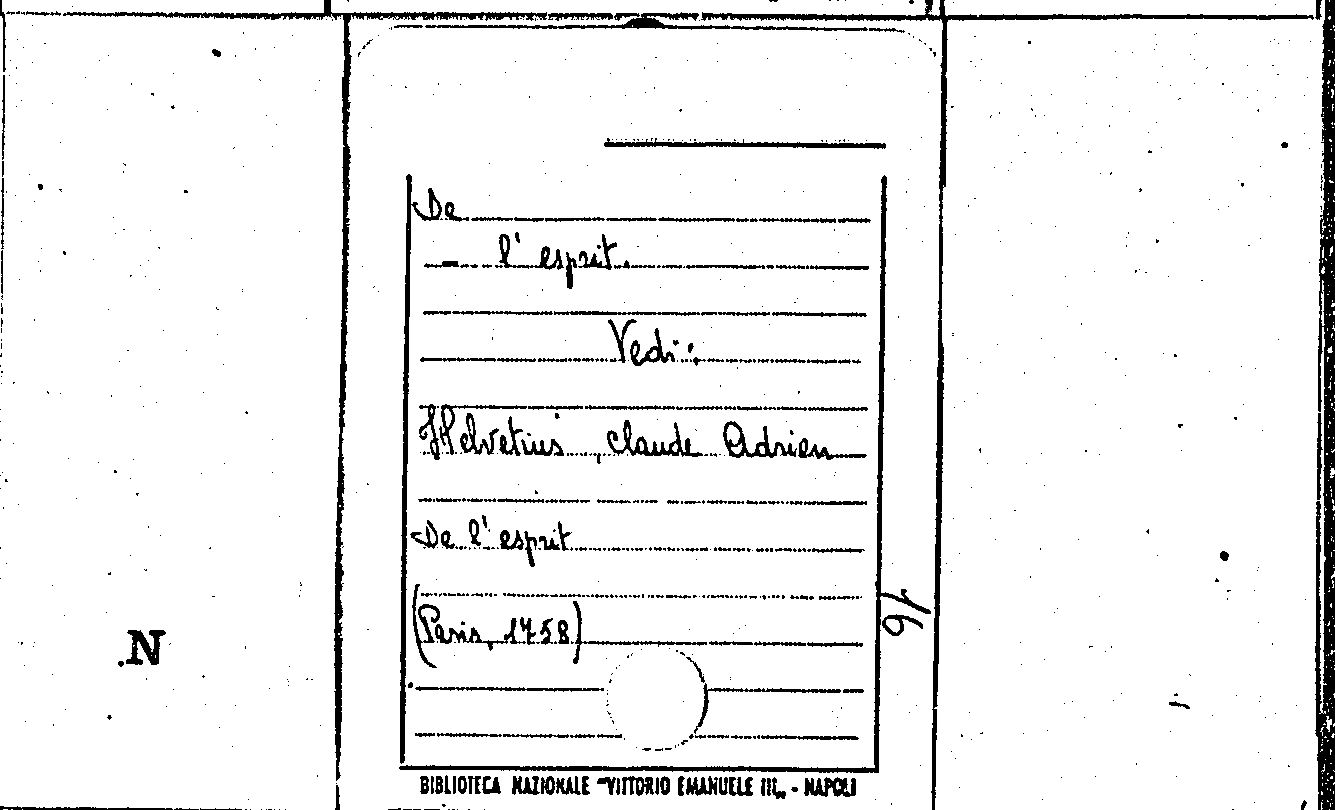 De
– l'esprit.
Vedi:
Helvetius, Claude Adrien
De l'esprit
(Paris, 1758)
16
.N
BIBLIOTECA NAZIONALE "VITTORIO EMANUELE III„ - NAPOLI